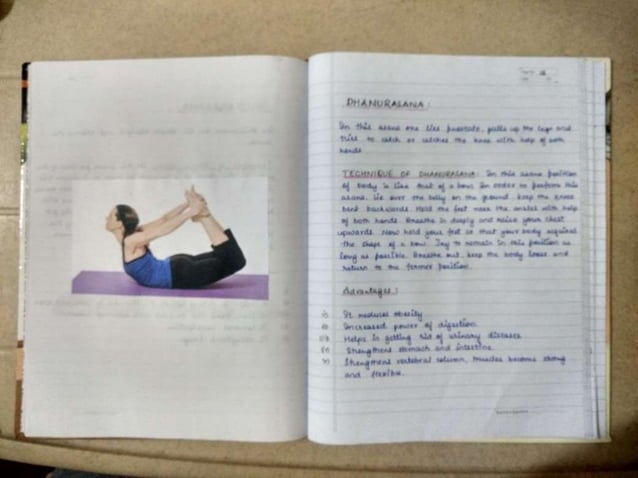 DHANURASANA :
In this asana one lies prostrate, pulls up the legs and
tries to catch or catches the knee with help of both
hands.
TECHNIQUE OF DHANURASANA: In this asana position
of body is like that of a bow. In order to perform this
asana, lie over the belly on the ground. keep the knees
bent backwards. Hold the feet near the ankles with help
of both hands. Breathe in deeply and raise your chest
upwards. Now hold your feet so that your body acquired
the shape of a bow. Try to remain in this position as
long as possible. Breathe out, keep the body loose and
return to the former position.
Advantages :
i) It reduces obesity
ii) Increased power of digestion.
iii) Helps in getting rid of urinary diseases
iv) Strengthens stomach and intestine.
v) Strengthens vertebral column, muscles become strong
and flexible.